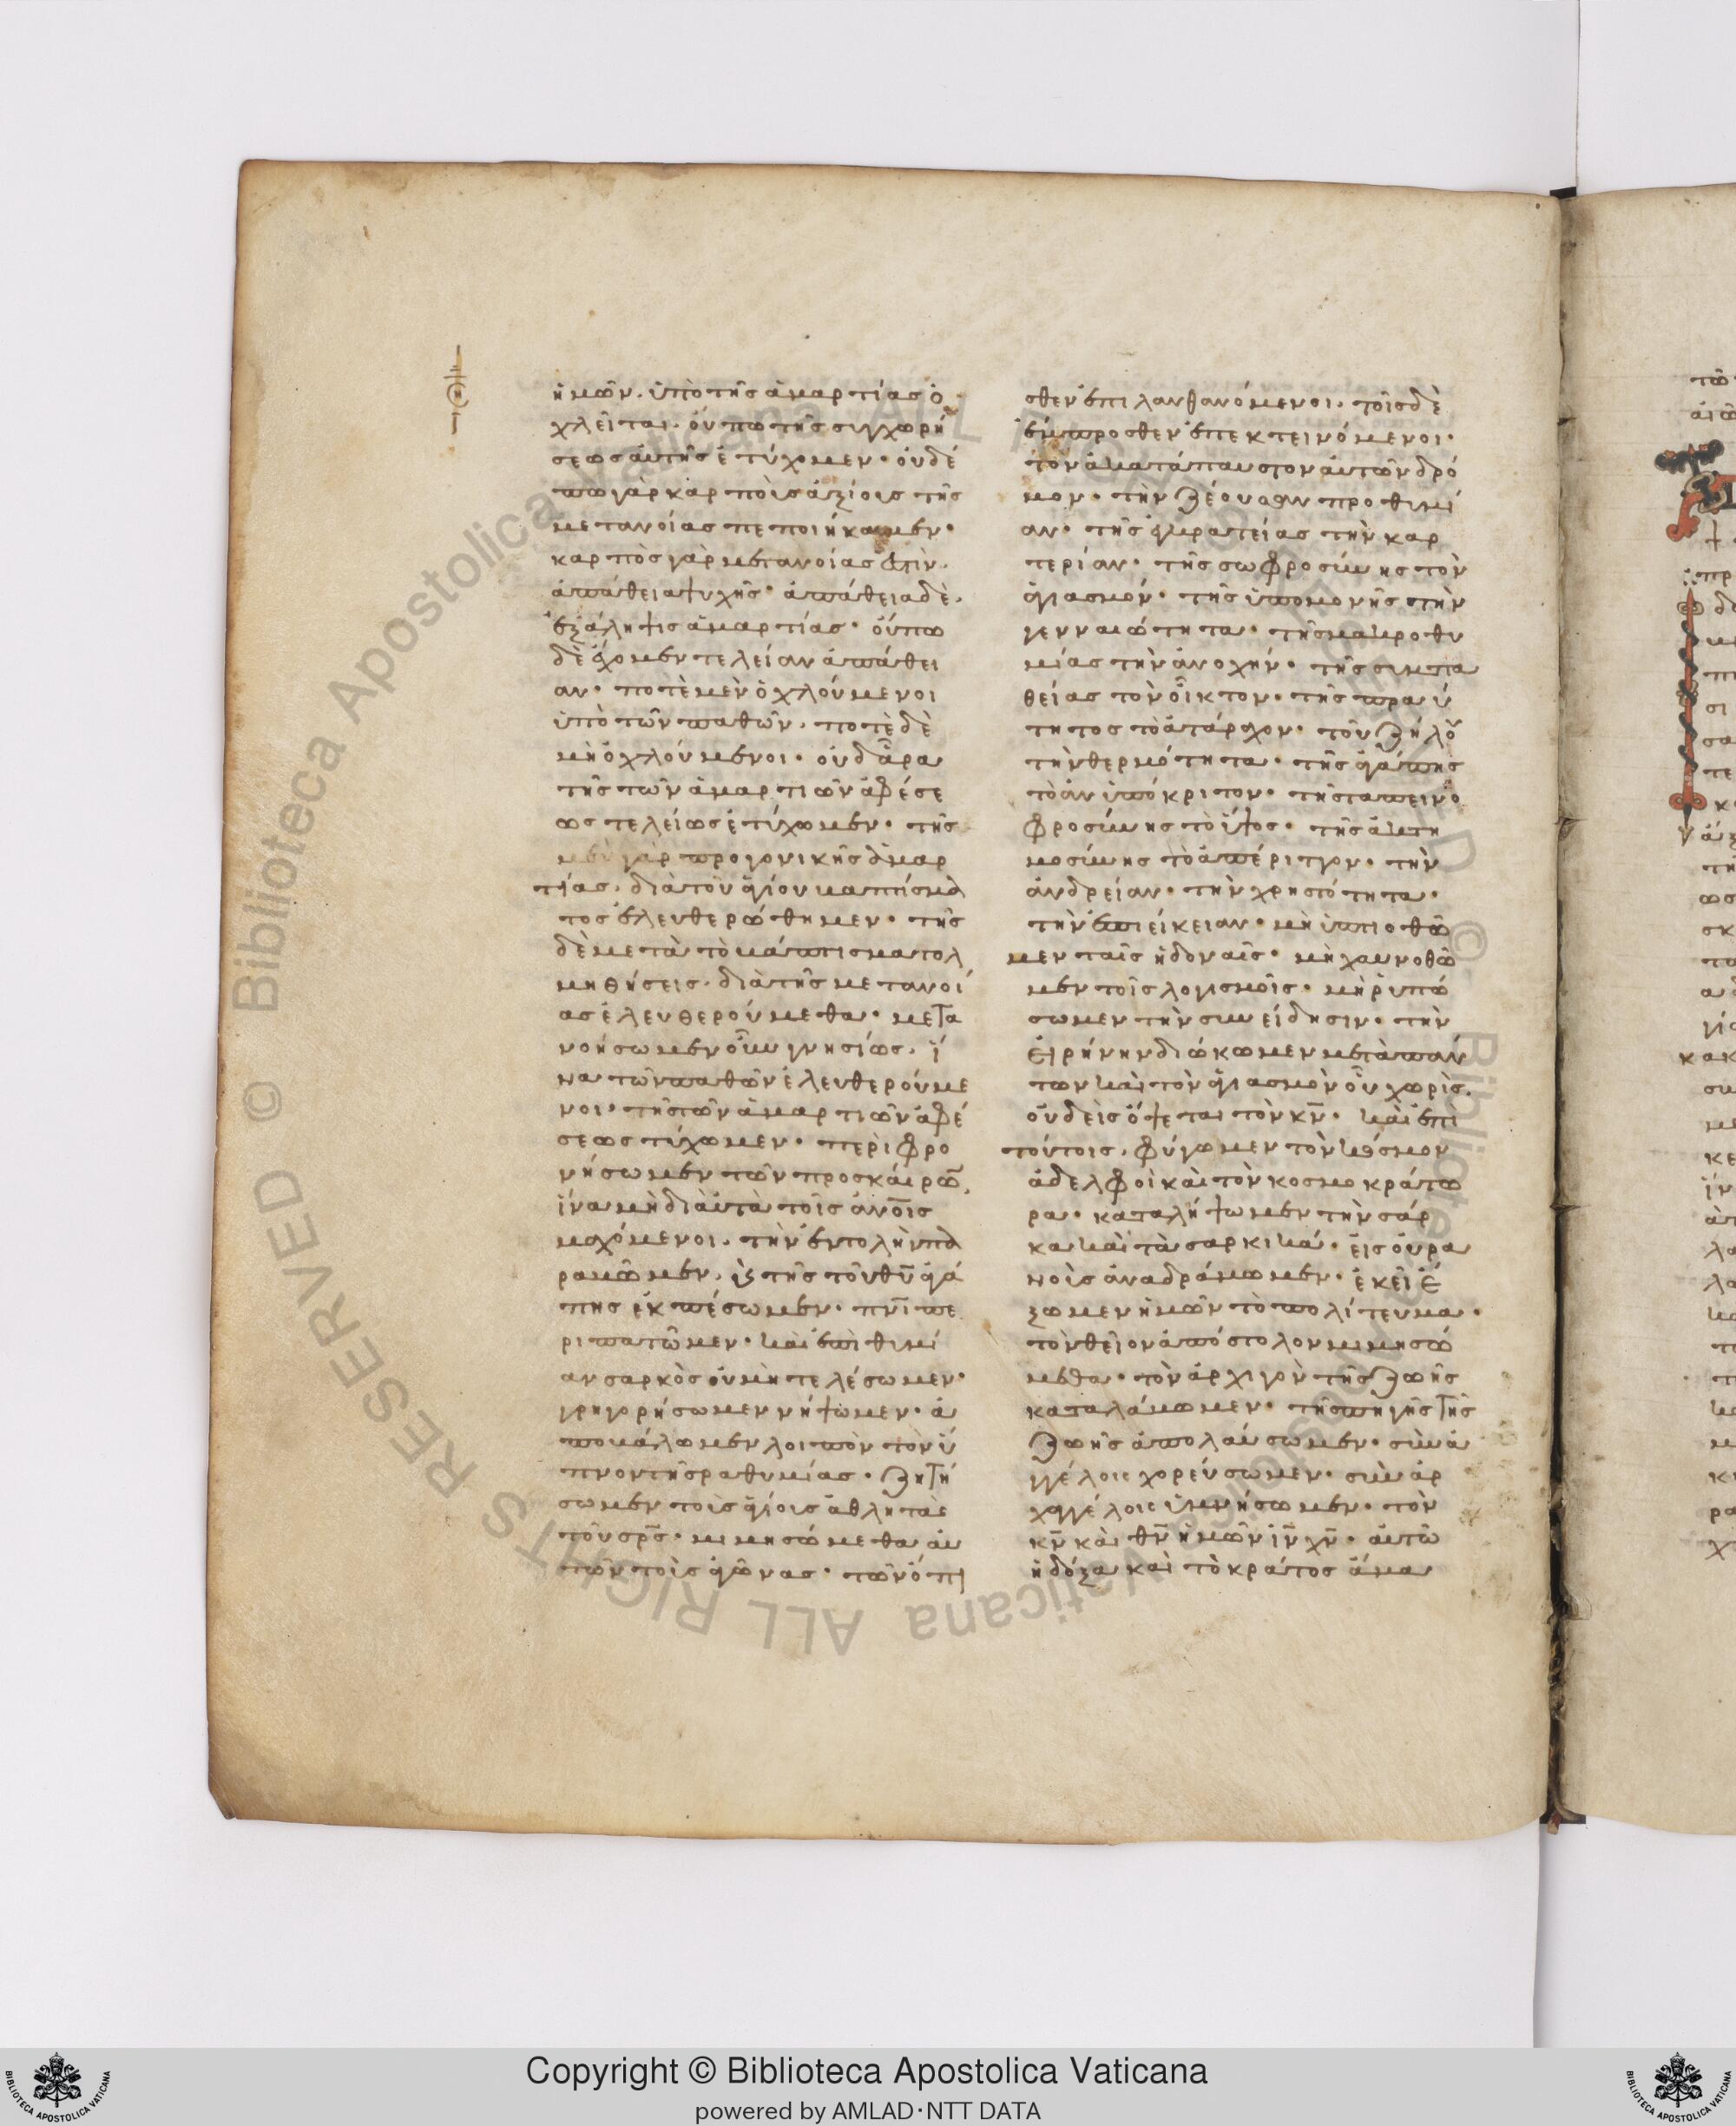 ἡμῶν. ὑπὸ τῆς ἁμαρτίας ὀ
χλεῖται. οὔπω τῆς συγχωρή
σεως αὐτῆς ἐτύχομεν. οὐδέ
πω γὰρ καρποὺς ἀξίους τῆς
μετανοίας πεποιήκαμεν.
καρπὸς γὰρ μετανοίας ἐστὶν.
ἀπάθεια ψυχῆς. ἀπάθεια δὲ.
ἐξάληψις ἁμαρτίας. οὔπω
δὲ ἔχομεν τελείαν ἀπάθει
αν. ποτὲ μὲν ὀχλούμενοι
ὑπὸ τῶν παθῶν. ποτὲ δὲ
μὴ ὀχλούμενοι. οὐδ' ἄρα
τῆς τῶν ἁμαρτιῶν ἀφέσε
ως τελείως ἐτύχωμεν. τῆς
μὲν γὰρ προγονικῆς ἁμαρ
τίας. διὰ τοῦ ἁγίου βαπτίσμα
τος ἐλευθερώθημεν. τῆς
δὲ μετὰ τὸ βάπτισμα τολ
μηθήσεις. διὰ τῆς μετανοί
ας ἐλευθερούμεθα. μετα
νοήσωμεν οὖν γνησίως. ἵ
να τῶν παθῶν ἐλευθερούμε
νοι. τῆς τῶν ἁμαρτιῶν ἀφέ
σεως τύχωμεν. περιφρο
νήσωμεν τῶν προσκαίρων,
ἵνα μὴ δι' αὐτὰ τοῖς ἀνοις
μαχόμενοι. τὴν ἐντολὴν πα
ραβῶμεν, καὶ τῆς τοῦ θυ ἀγά
πης ἐκπέσωμεν. πνι πε
ριπατῶμεν. καὶ ἐπιθυμί
αν σαρκὸς οὐ μὴ τελέσωμεν.
γρηγορήσωμεν νήψωμεν. ἀ
ποβάλωμεν λοιπὸν τὸν ὕ
πνον τῆς ραθυμίας. ζητή
σωμεν τοὺς ἁγίους ἀθλητὰς
τοῦ σρς. μιμησώμεθα αὐ
τῶν τοὺς ἀγῶνας. τῶν ὄπι
σθεν ἐπιλανθανόμενοι. τοῖς δὲ
ἔμπροσθεν ἐπεκτεινόμενοι.
τὸν ἀκατάπαυστον αὐτῶν δρό
μον. τὴν ζέουσαν προθυμί
αν. τῆς ἐγκρατείας τὴν καρ
τερίαν. τῆς σωφροσύνης τὸν
ἁγιασμόν. τῆς ὑπομονῆς τὴν
γενναιότητα. τῆς μακροθυ
μίας τὴν ἀνοχήν. τῆς συμπα
θείας τὸν οἶκτον. τῆς πραΰ
τητος τὸ ἀτάραχον. τοῦ ζήλου
τὴν θερμότητα. τῆς ἀγάπης
τὸ ἀνυπόκριτον. τῆς ταπεινο
φροσύνης τὸ ὕψος. τῆς ἀκτη
μοσύνης τὸ ἀπέριττον. τὴν
ἀνδρείαν. τὴν χρηστότητα.
τὴν ἐπιείκειαν. μὴ ὑπιοθῶ
μεν ταῖς ἡδοναῖς. μὴ χαυνοθῶ
μεν τοῖς λογισμοῖς. μὴ ῥυπώ
σωμεν τὴν συνείδησιν. τὴν
εἰρήνην διώκωμεν μετὰ πάν
των καὶ τὸν ἁγιασμὸν οὗ χωρὶς.
οὐδεὶς ὄψεται τὸν κν. καὶ ἐπὶ
τούτοις. φύγωμεν τὸν κόσμον
ἀδελφοὶ καὶ τὸν κοσμοκράτω
ρα. καταλήψωμεν τὴν σάρ
κα καὶ τὰ σαρκικά. εἰς οὐρα
νοὺς ἀναδράμωμεν. ἐκεῖ ἕ
ξωμεν ἡμῶν τὸ πολίτευμα.
τὸν θεῖον ἀπόστολον μιμησώ
μεθα. τὸν ἀρχιγὸν τῆς ζωῆς
καταλάβωμεν. τῆς πηγῆς τῆς
ζωῆς ἀπολαύσωμεν. σὺν ἀ
γγέλοις χορεύσωμεν. σὺν ἀρ
χαγγέλοις ὑμνήσωμεν. τὸν
κν καὶ θν ἡμῶν ιν χν. αὐτῶ
ἡ δόξα καὶ τὸ κράτος ἅμα
Copyright © Biblioteca Apostolica Vaticana
powered by AMLAD·NTT DATA
© Biblioteca Apostolica Vaticana ALL RIGHTS RESERVED
BIBLIOTECA APOSTOLICA VATICANA
BIBLIOTECA APOSTOLICA VATICANA